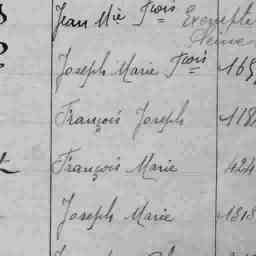 Jean Mie Fçois Exempté
Joseph Marie Fçois 165
François Joseph 118
François Marie 424
Joseph Marie 1313